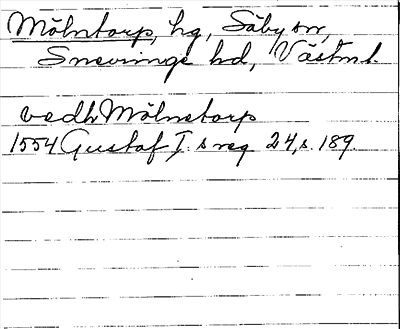 Mölntorp, hg, Säby sn,
Snevringe hd, Västml.
vedh Mölnetorp
1554 Gustaf I:s reg 24, s. 189.